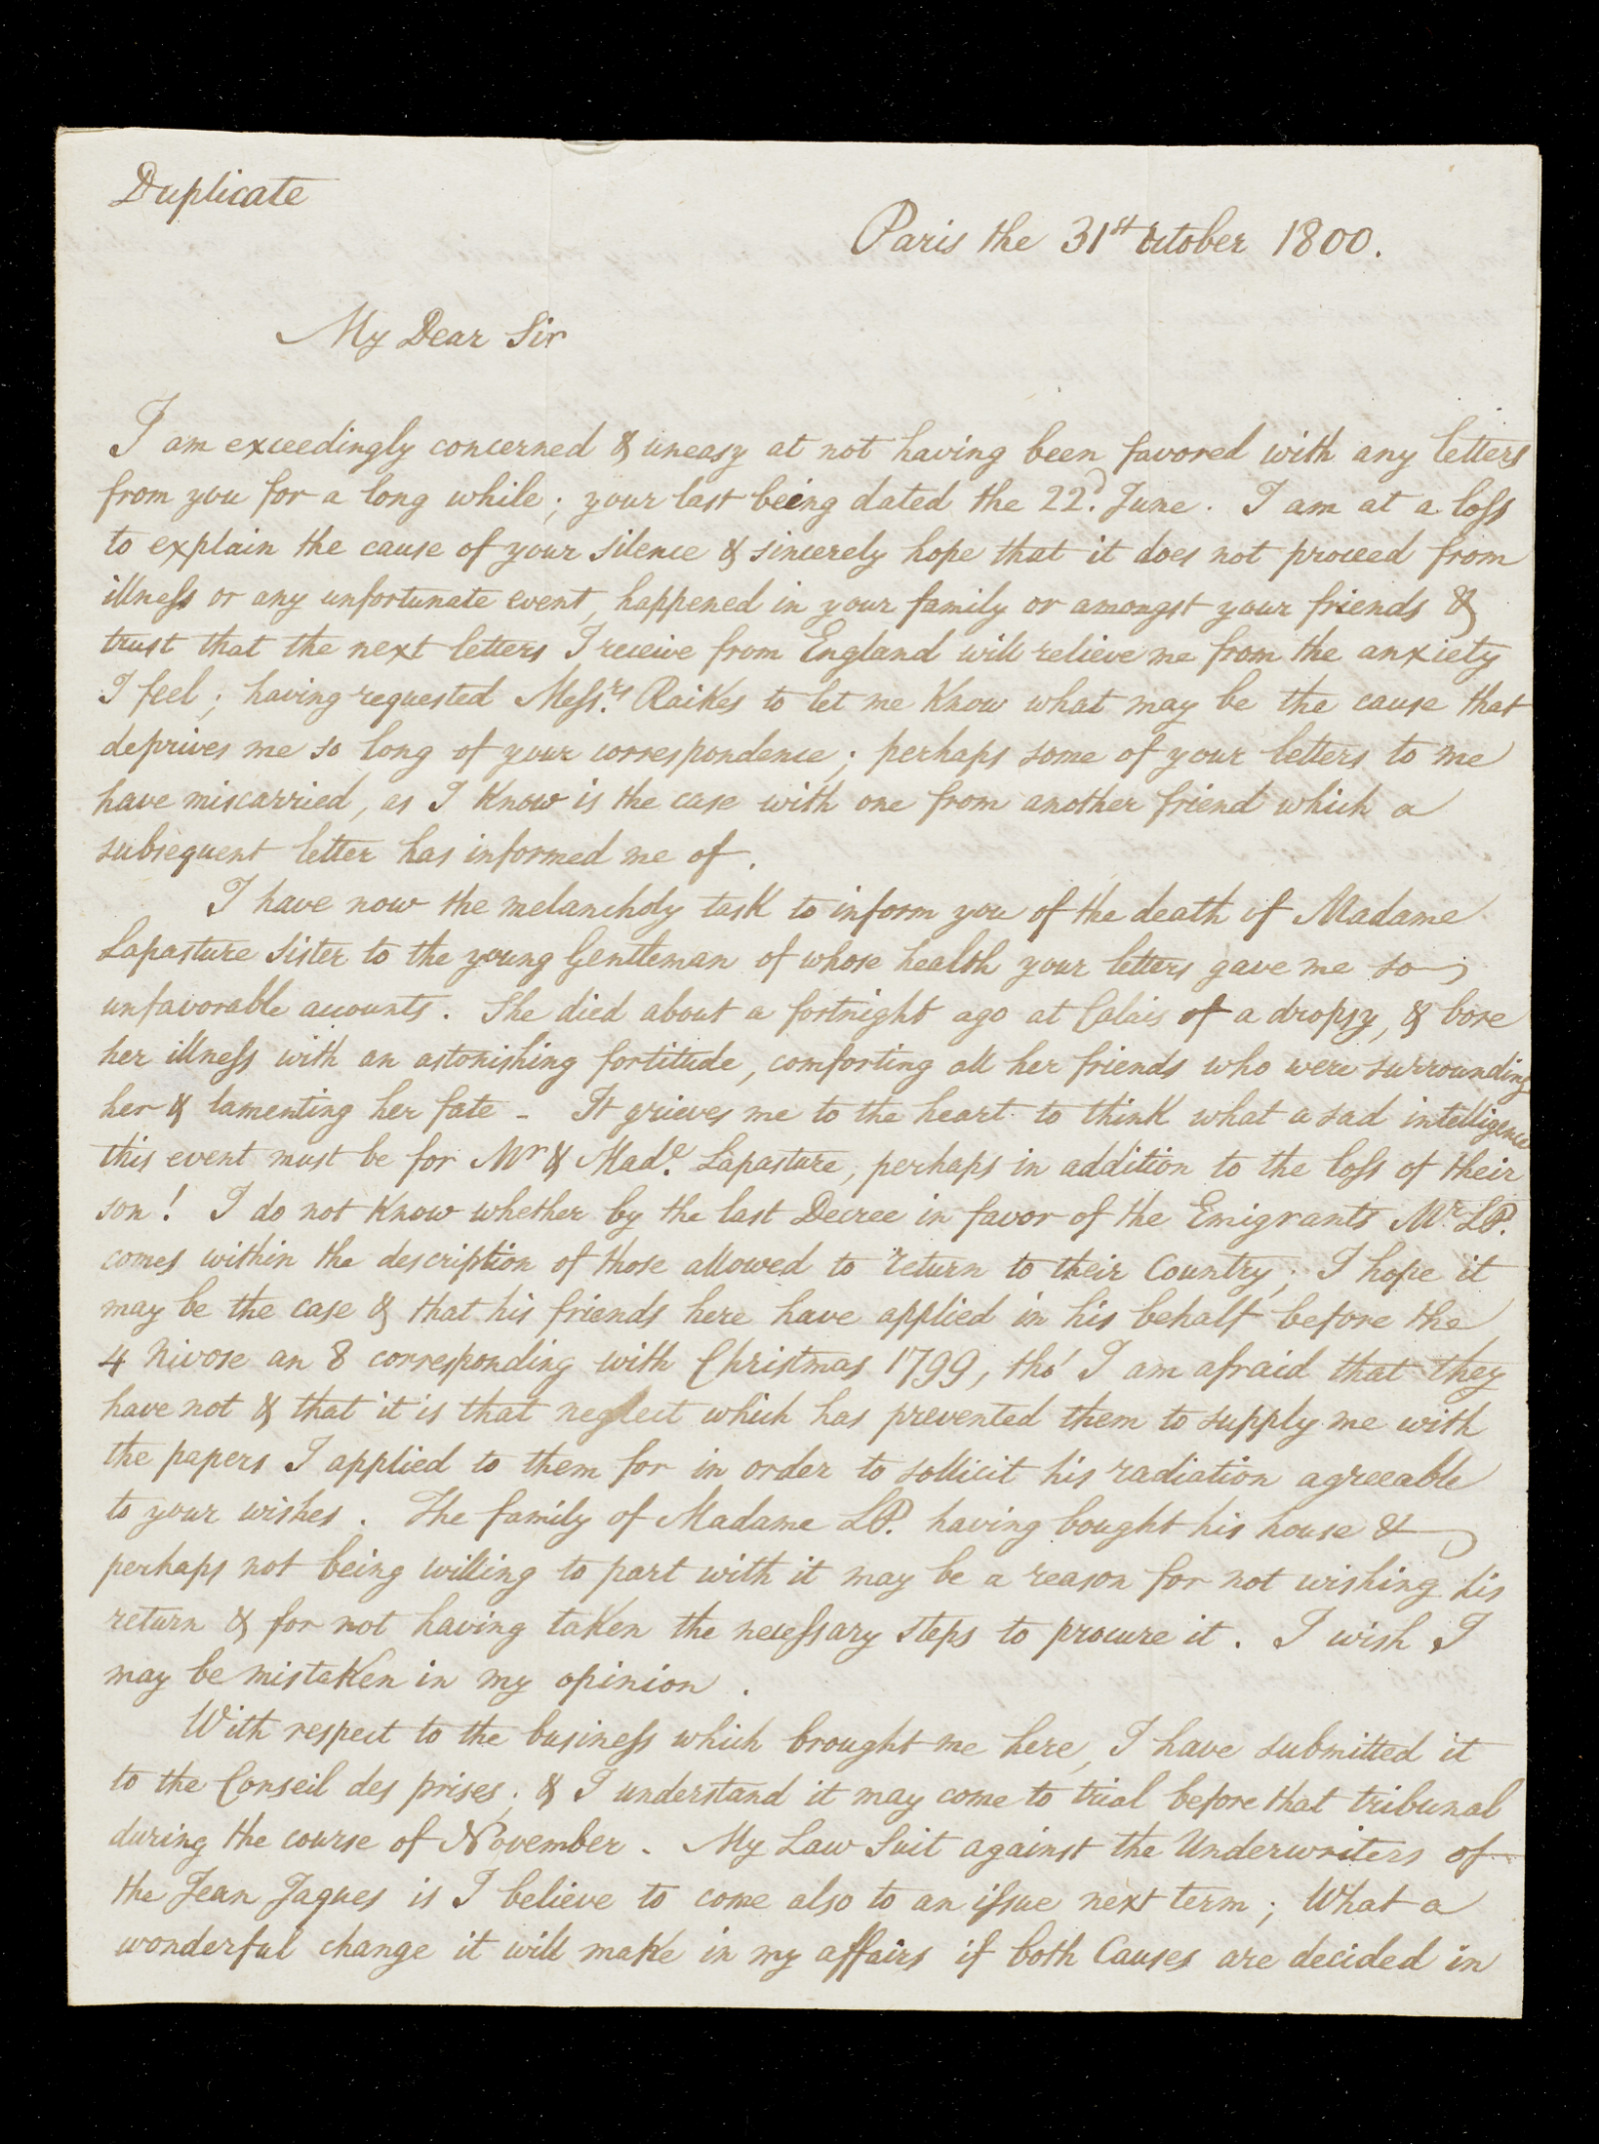 Duplicate
Paris the 31st October 1800.
My Dear Sir
I am exceedingly concerned & uneasy at not having been favored with any letters
from you for a long while; your last being dated the 22d. June. I am at a loss
to explain the cause of your silence & sincerely hope that it does not proceed from
illness or any unfortunate event, happened in your family or amongst your friends &
trust that the next letters I receive from England will relieve me from the anxiety
I feel; having requested Messrs. Raikes to let me Know what may be the cause that
deprives me so long of your correspondence; perhaps some of your letters to me
have miscarried, as I Know is the case with one from another friend which a
subsequent letter has informed me of.
I have now the melancholy task to inform you of the death of Madame
Lapasture sister to the young Gentleman of whose health your letters gave me so
unfavorable accounts. She died about a fortnight ago at Calais of a dropsy, & bore
her illness with an astonishing fortitude, comforting all her friends who were surrounding
her & lamenting her fate - It grieves me to the heart to think what a sad intelligence
this event must be for Mr & Made. Lapasture, perhaps in addition to the loss of their
son! I do not Know whether by the last Decree in favor of the Emigrants Mr. LP.
comes within the description of those allowed to return to their Country; I hope it
may be the case & that his friends here have applied in his behalf before the
4 Nivose an 8 corresponding with Christmas 1799, tho' I am afraid that they
have not & that it is that neglect which has prevented them to supply me with
the papers I applied to them for in order to sollicit his radiation agreeable
to your wishes. The family of Madame LP. having bought his house &
perhaps not being willing to part with it may be a reason for not wishing his
return & for not having taken the necessary steps to procure it. I wish I
may be mistaken in my opinion.
With respect to the business which brought me here, I have submitted it
to the Conseil des prises; & I understand it may come to trial before that tribunal
during the course of November. My Law Suit against the Underwriters of
the Jean Jaques is I believe to come also to an issue next term; What a
wonderful change it will make in my affairs if both Causes are decided in